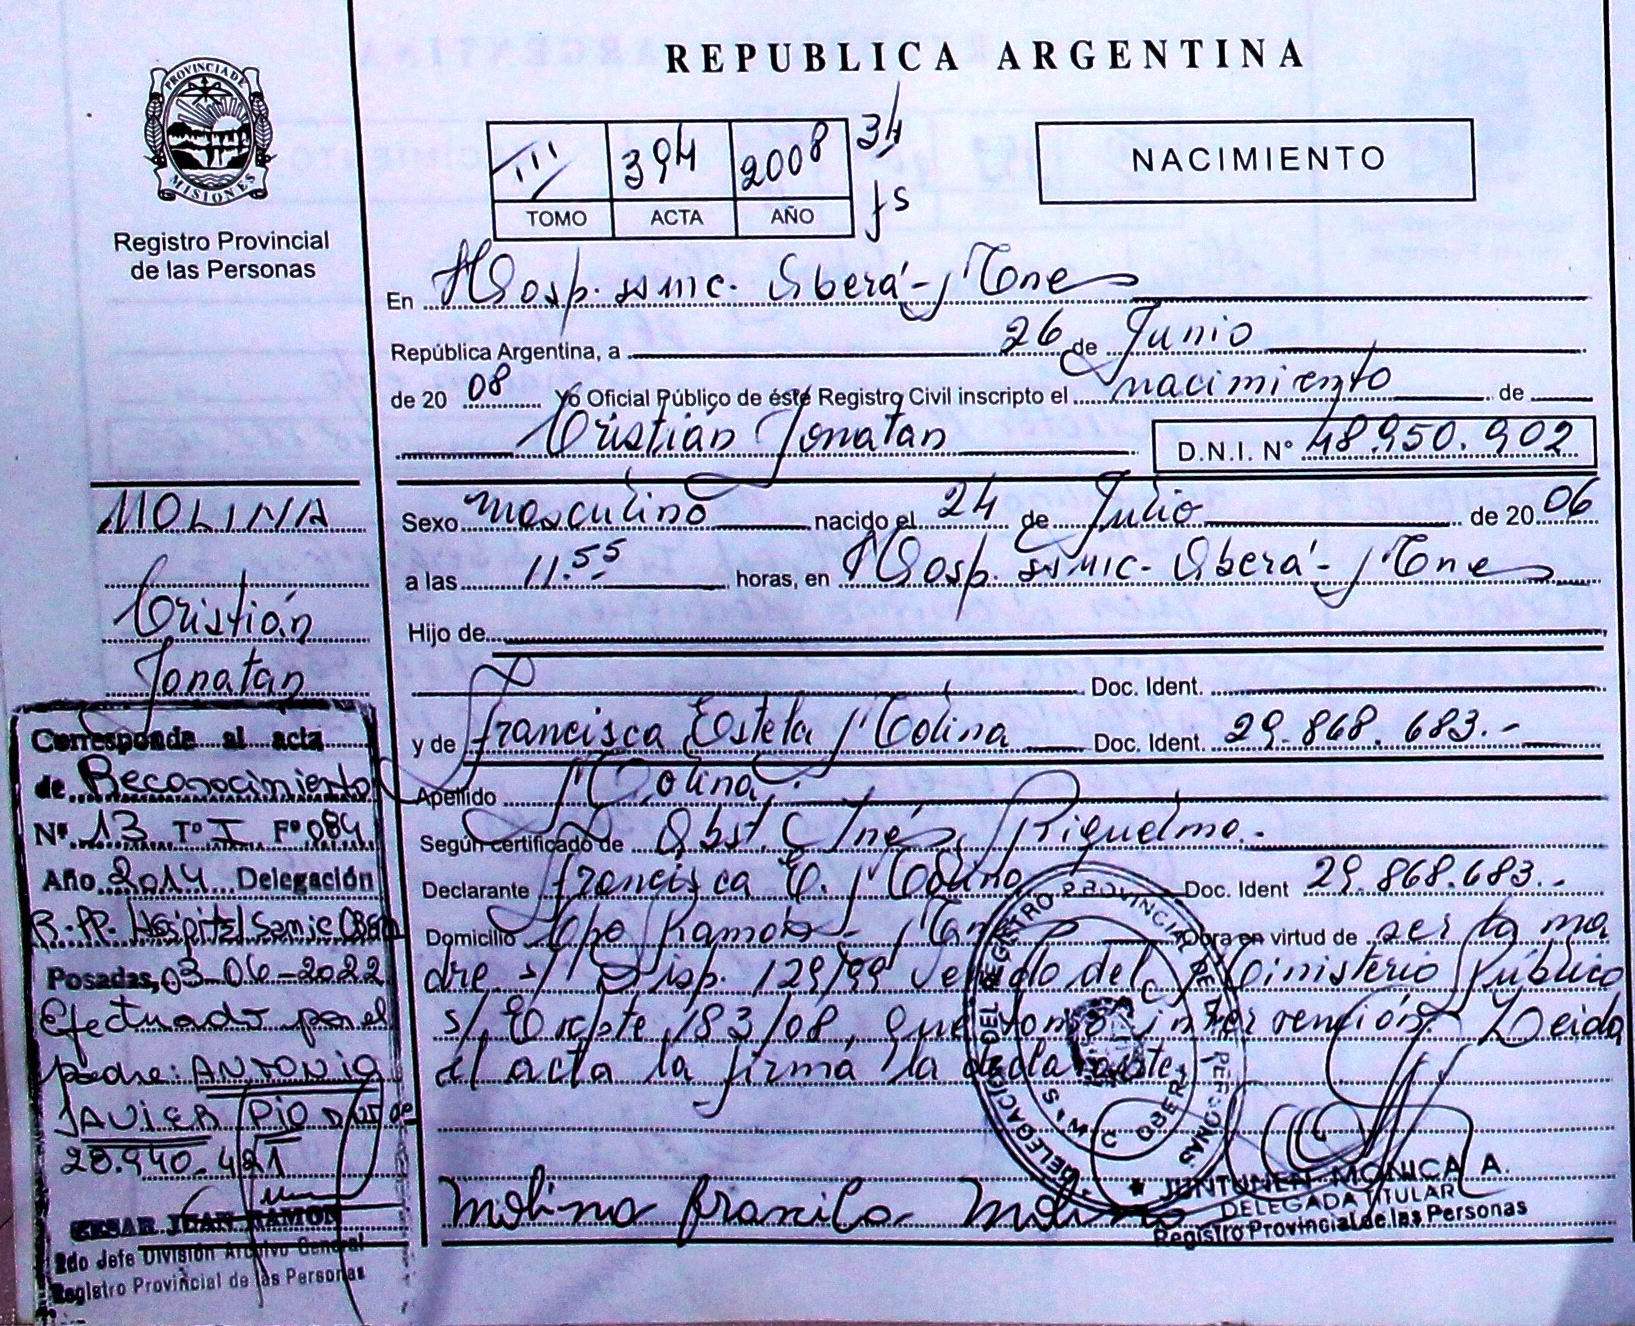 REPUBLICA ARGENTINA
PROVINCIA DE MISIONES
Registro Provincial
de las Personas
III 394 2008 34
TOMO ACTA AÑO fs
NACIMIENTO
En Hosp. ssmic. Oberá - Mnes
República Argentina, a 26 de Junio
de 2008 Yo Oficial Público de éste Registro Civil inscripto el nacimiento de
Cristián Jonatan D.N.I. Nº 48.950.902
Sexo masculino nacido el 24 de Julio de 2006
a las 11.55 horas, en Hosp. ssmic. Oberá - Mnes
Hijo de
Doc. Ident.
y de Francisca Estela Molina Doc. Ident. 29.868.683.-
Apellido Molina.
Según certificado de Obst. C. Inés Riquelme.
Declarante Francisca E. Molina Doc. Ident 29.868.683.-
Domicilio Cpo Ramón - Mnes Obra en virtud de ser la ma
dre s/ Disp. 129/99 del Ministerio Público
s/ Expte 183/08, que tomó intervención. Leida
el acta la firma la declarante.
Molina Francisca Molina
JUNTUNEN MONICA A.
DELEGADA TITULAR
Registro Provincial de las Personas
MOLINA
Cristián
Jonatan
Corresponde al acta
de Reconocimiento
Nº 13 Tº I Fº 084
Año 2014 Delegación
R.PP. Hospital Samic Oberá
Posadas, 03-06-2022
Efectuado por el
padre: ANTONIO
JAVIER PIO DNI de
28.940.421
CESAR JUAN RAMON
2do Jefe División Archivo General
Registro Provincial de las Personas